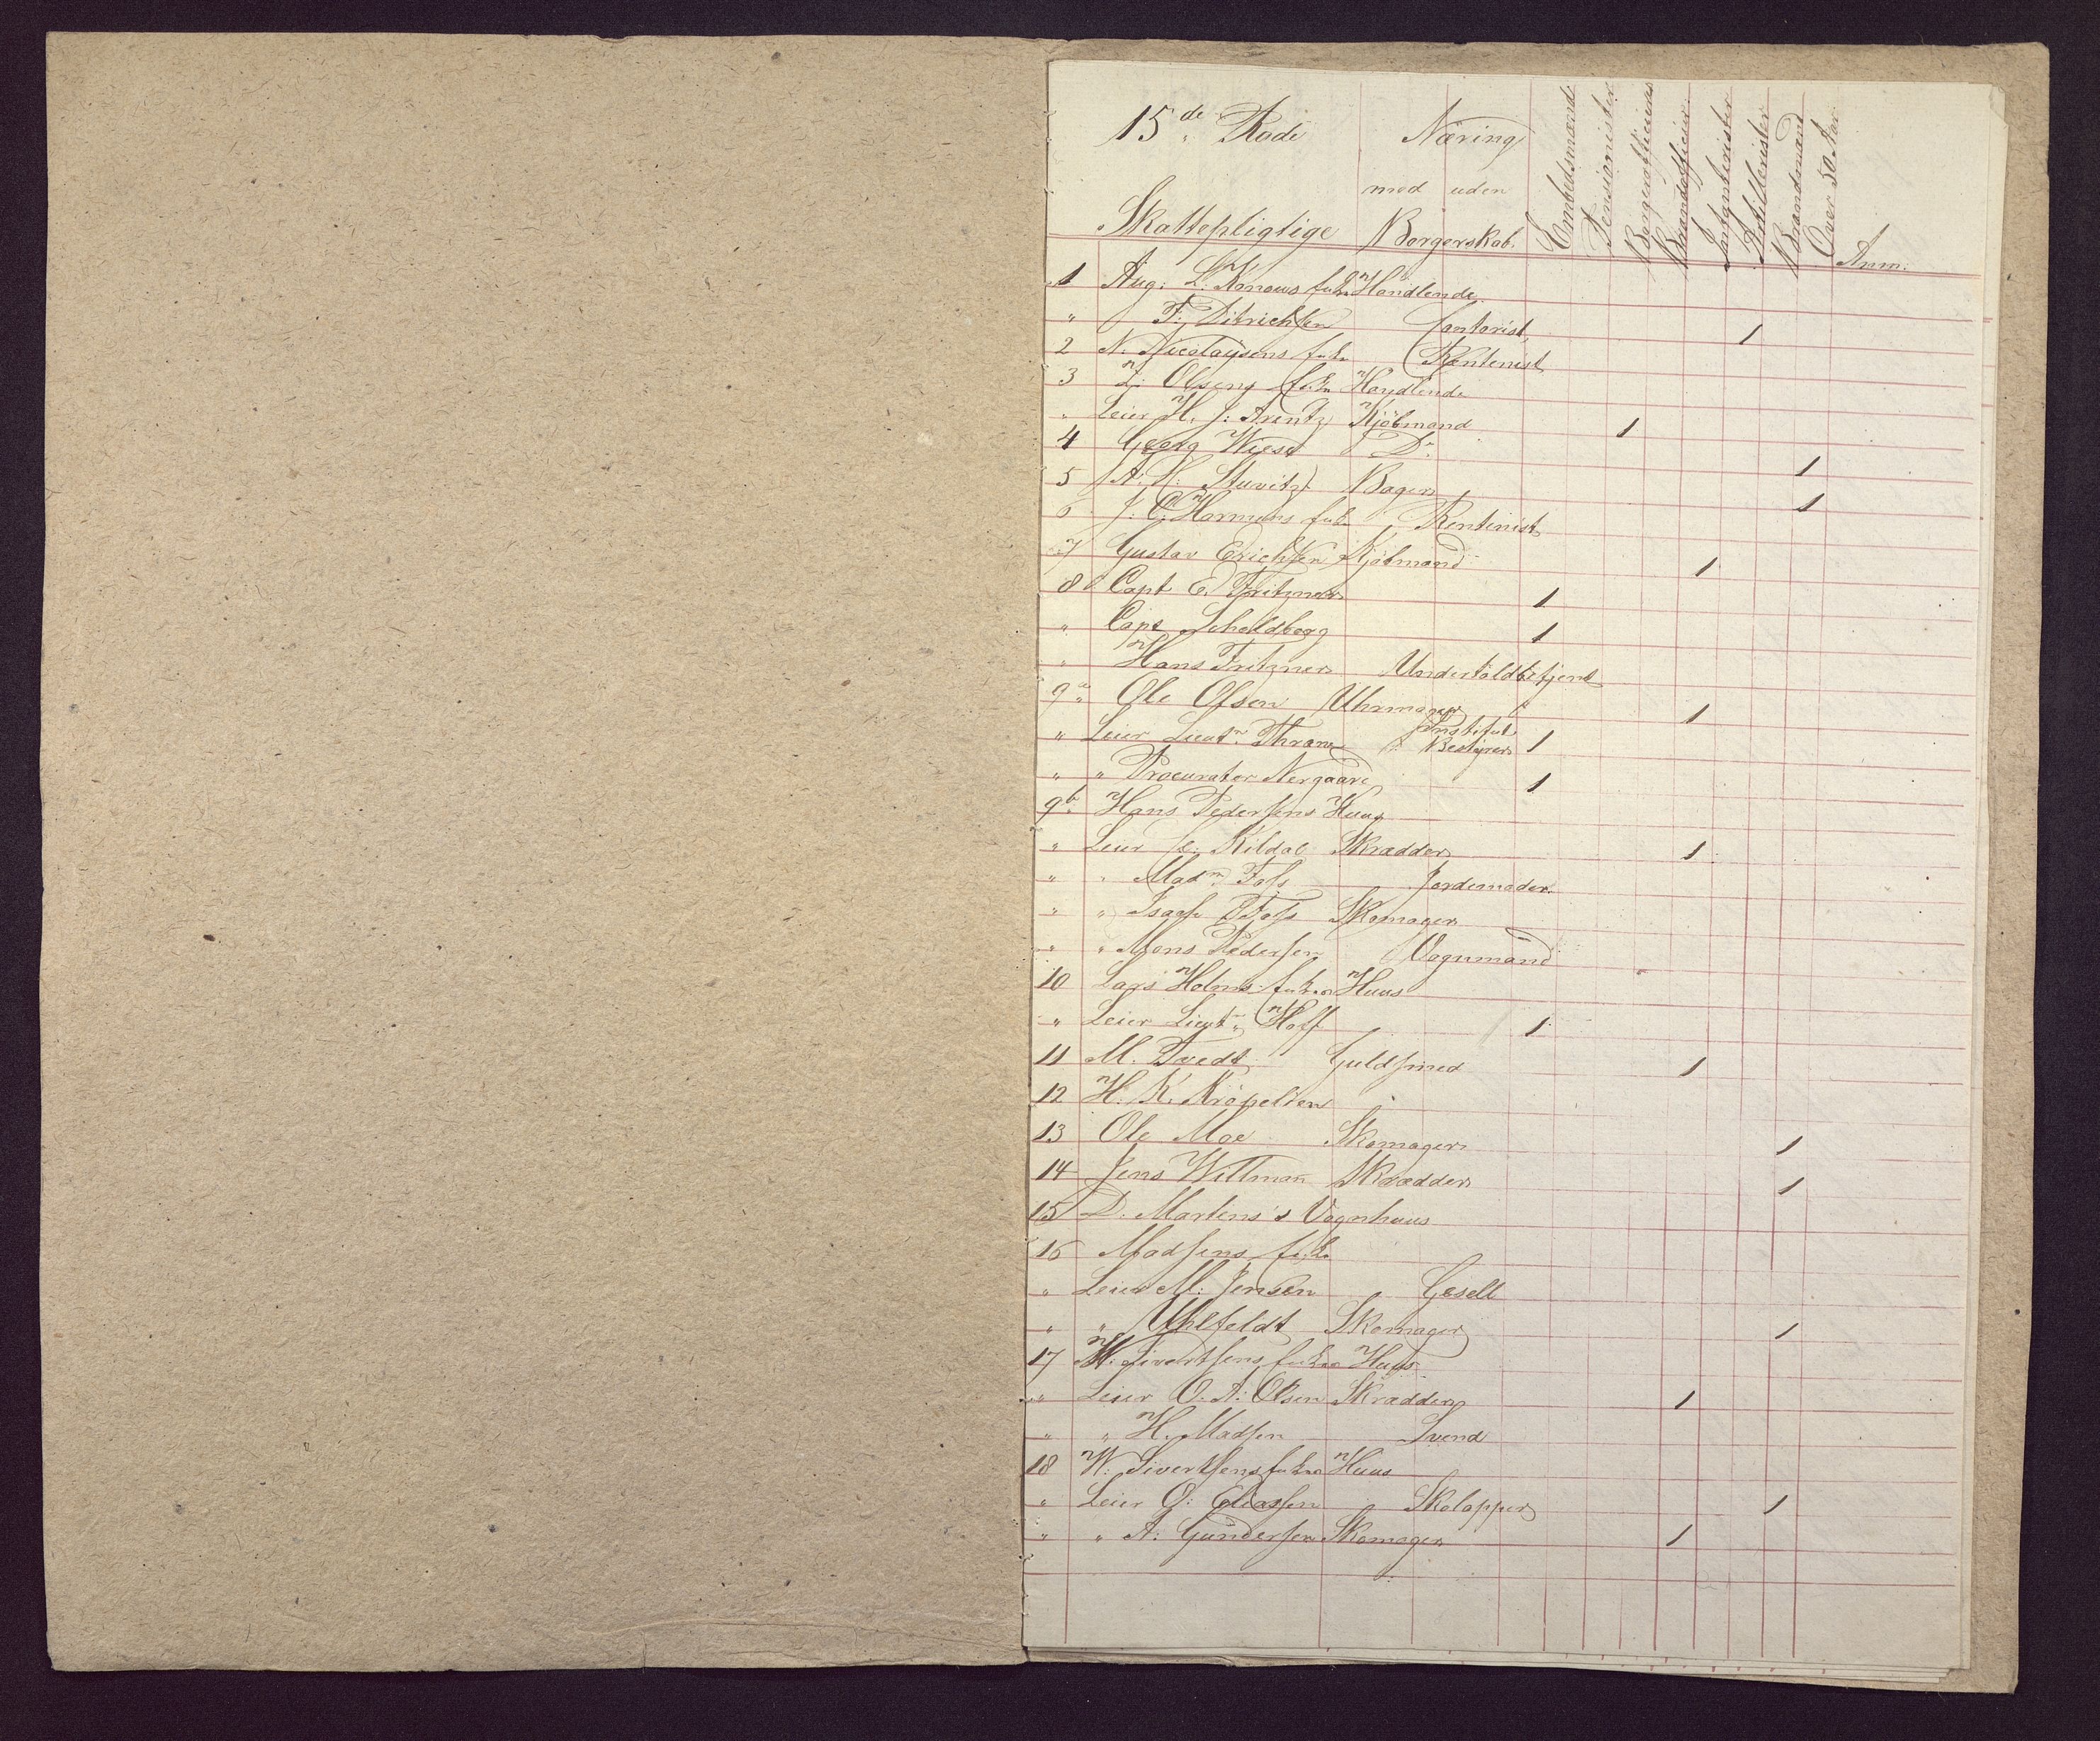 15de Rode Næring
med uden
Skattepligtige Borgerskab. Embedsmænd Pensionister Borgerofficiers Brandofficier Infanterister Artillerister Brandmænd Over 50 Aar Anm.
1 Aug: L: Konows Handlende
" F: Ditrichsen Contorist 1
2 N. Nicolaysens Rentenist
3 Olsens Handlende
" Leier H. J: Arentz Kjöbmand 1
4 Georg Wiese Do 1
5 A: H: Stuwitz Bager 1
6 J: C: Harmens Rentenist
7 Gustav Erichsen Kjöbmand 1
8 Capt E. Fritzner 1
" Capt Scholdberg 1
" Hans Fritzner Undertoldbetjent
9a Ole Olsen Uhrmager 1
" Leier Lieutn Thrane Institut Bestyrer 1
" " Procurator Nergaard 1
9b Hans Pedersens Huus
" Leier C: Kildal Skrædder 1
" " Madm Foss Jordemoder
" " Isach Foss Skomager
" " Mons Pedersen Vognmand
10 Lars Holms Huus
" Leier Lieut Hoff 1
11 M. Tvedt Guldsmed 1
12 H. K. Kröpelien
13 Ole Moe Skomager 1
14 Jens Wittman Skrædder 1
15 D. Martens's Vognhuus
16 Madsens
" Leier M: Jensen Gesell
" " Uhlfeldt Skomager 1
17 W: Sivertsens Huus
" Leier O. A: Olsen Skrædder 1
" " H. Madsen Svend
18 W: Sivertsens Huus
" Leier O: Eliassen Skolapper 1
" " A: Gundersen Skomager 1